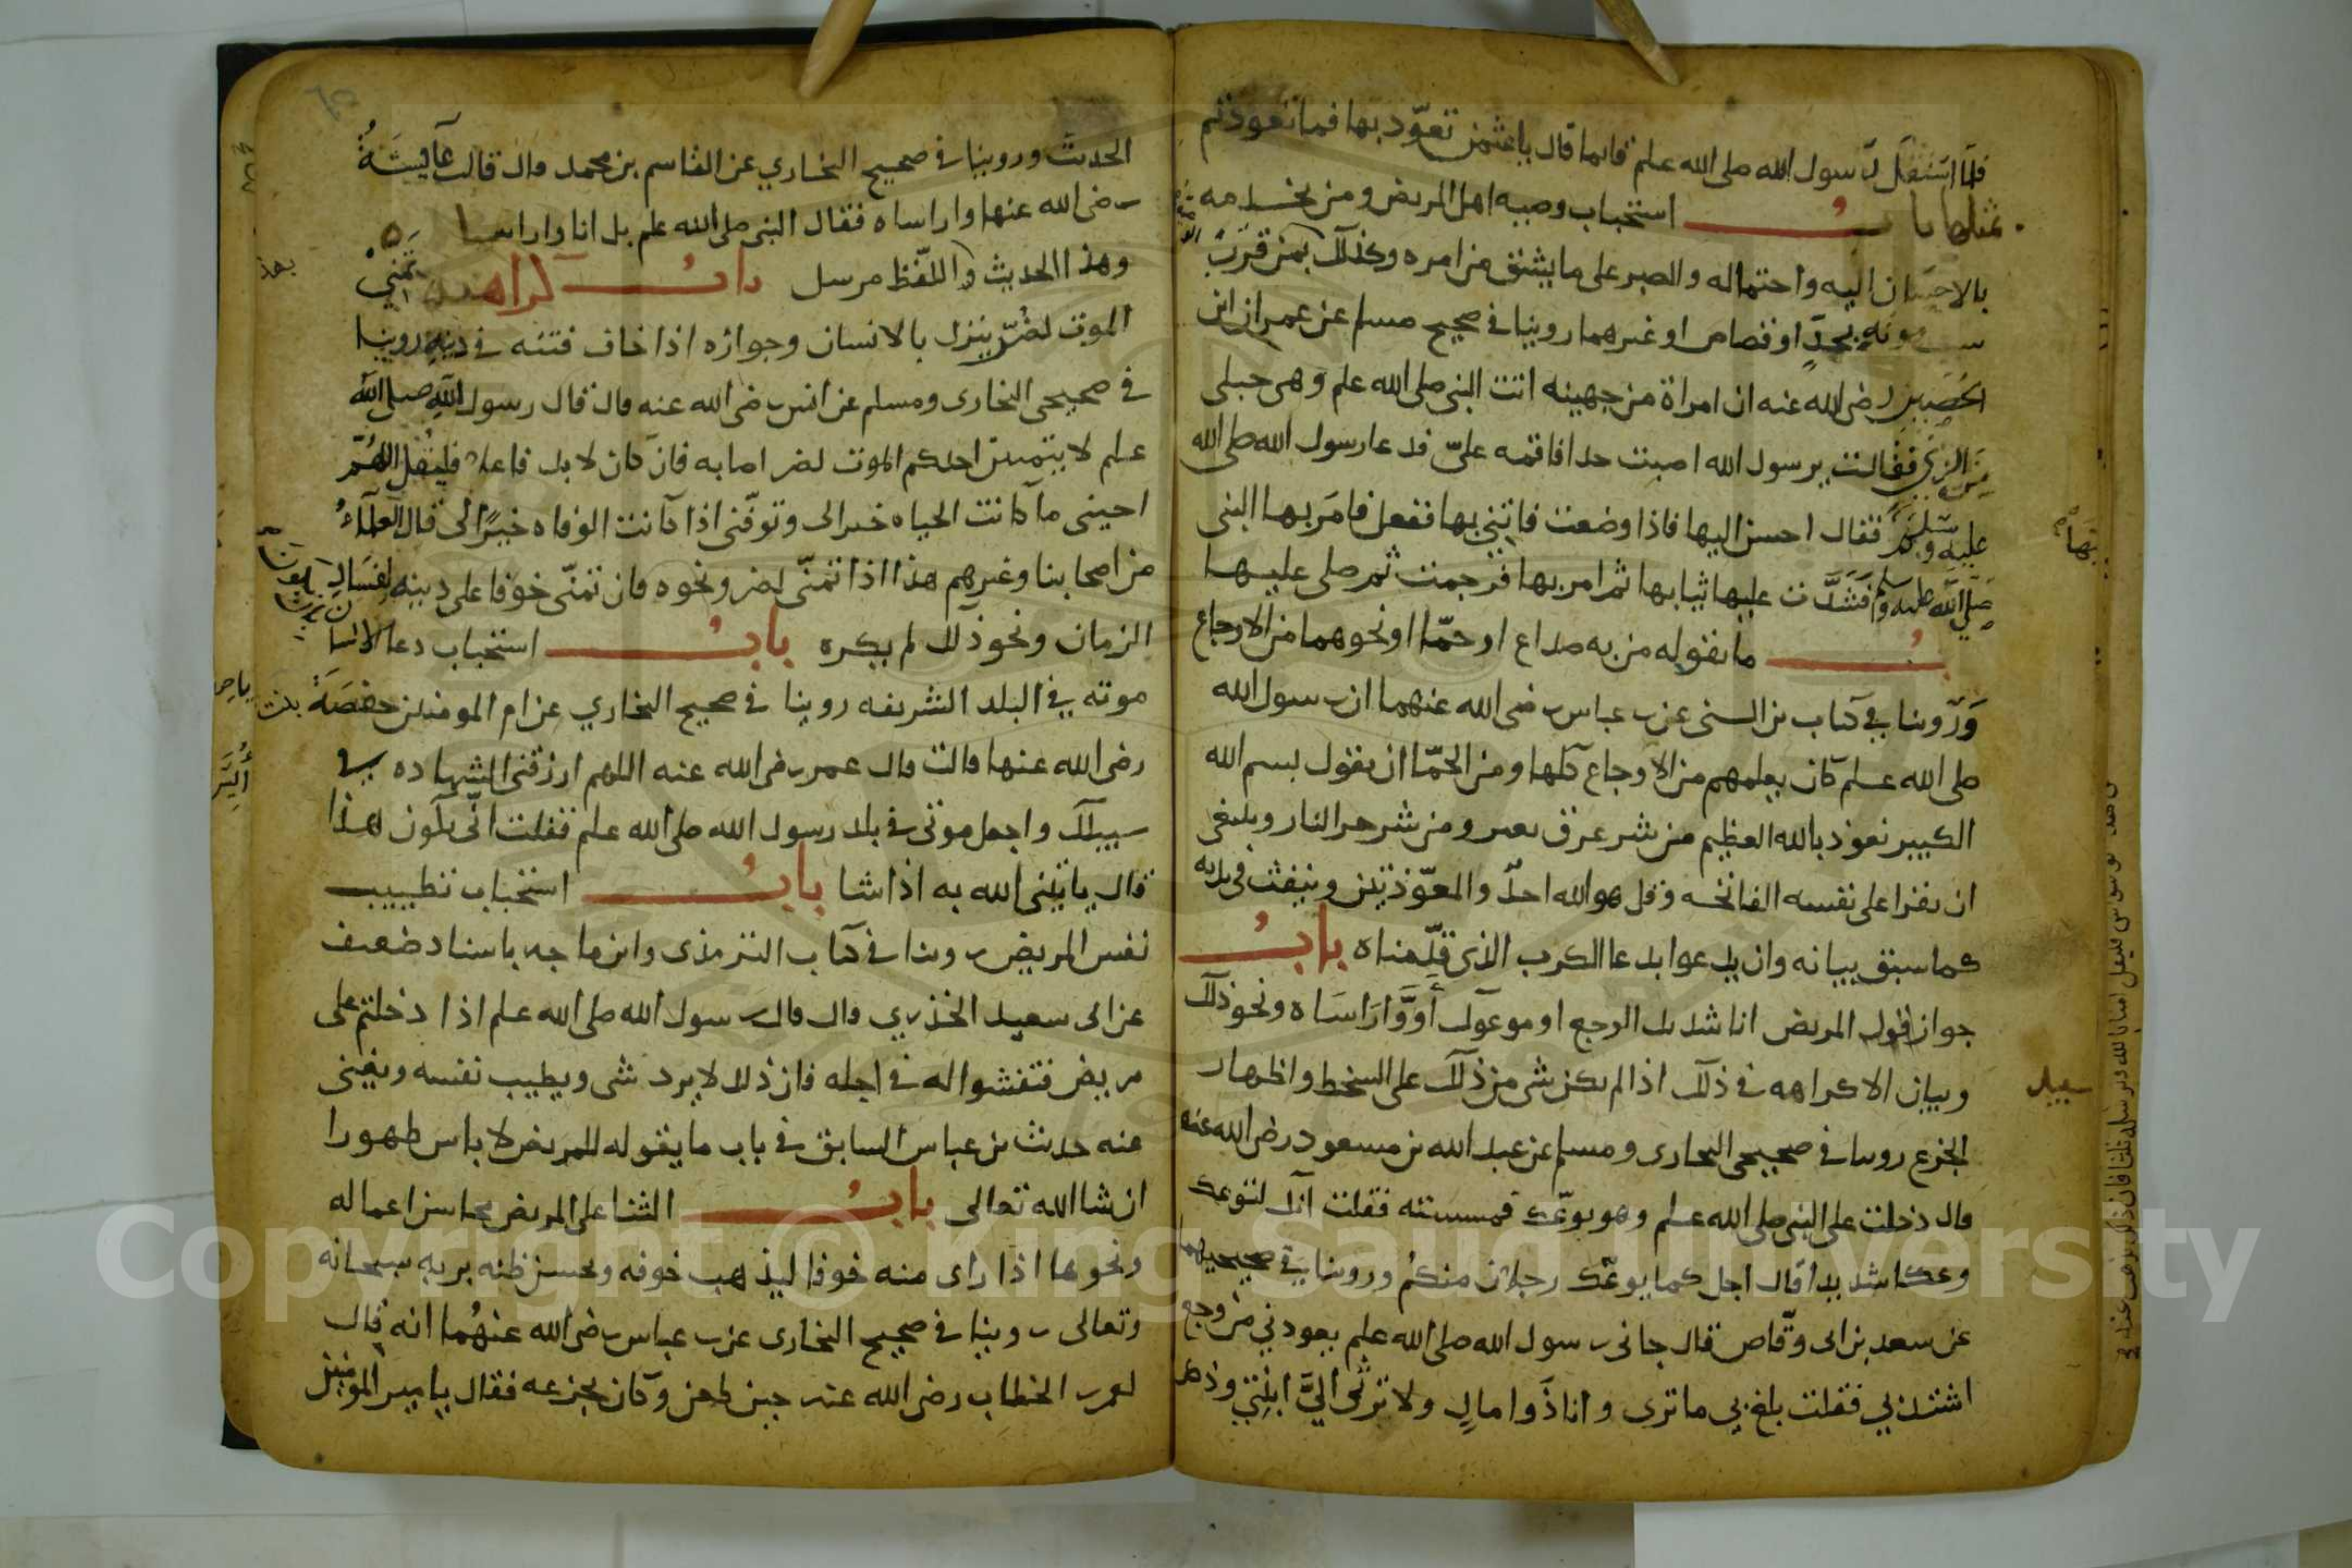 فلما استقل رسول الله صلى الله علم قايما قال ياعثمن تعوّد بها فما تعوذتم
بمثلها باب استحباب وصيه اهل المريض ومن يخدمه
بالاحسان اليه واحتماله والصبر على ما يشق من امره وكذلك بمن قرب
سبب موته بحدٍّ او قصاص او غيرهما روينا في صحيح مسلم عن عمران ابن
الحصين رضى الله عنه ان امراة من جهينه اتت النبى صلى الله علم وهى حبلى
من الزنى فقالت يرسول الله اصبت حدا فاقمه علىّ فدعا رسول الله صلى الله
عليه وسلم فقال احسن اليها فاذا وضعت فاتني بها ففعل فامر بها النبى
صلى الله عليه وسلم فشدّت عليها ثيابها ثم امر بها فرجمت ثم صلى عليها
باب ما يقوله من به صداع او حمّا او نحوهما من الاوجاع
وروينا في كتاب بن السنى عن بن عباس رضى الله عنهما ان رسول الله
صلى الله علم كان يعلمهم من الاوجاع كلها ومن الحمّا ان يقول بسم الله
الكبير نعوذ بالله العظيم من شر عرق نعر ومن شر حر النار وينبغى
ان يقرا على نفسه الفاتحه وقل هو الله احدٌ والمعوّذتين وينفث فى يديه
كما سبق بيانه وان يدعوا بدعا الكرب الذى قدّمناه باب
جواز قول المريض انا شديد الوجع او موعوك أو وارَاسَاه ونحو ذلك
وبيان الا كراهه في ذلك اذا لم يكن شى من ذلك على السخط واظهار
الجزع روينا في صحيحى البخارى ومسلم عن عبد الله بن مسعود رضى الله عنه
قال دخلت على النبى صلى الله علم وهو يوعّك فمسسته فقلت انك لتوعك
وعكا شديدا قال اجل كما يوعّك رجلان منكم وروينا في صحيحيهما
عن سعد بن ابى وقّاص قال جانى رسول الله صلى الله علم يعودني من وجع
اشتد بي فقلت بلغ بي ما ترى وانا ذوا مالٍ ولا ترثنى اليَّ ابنتي وذكر
بها
سعيد
الحديث وروينا في صحيح البخاري عن القاسم بن محمد قال قالت عآيشَةُ
رضى الله عنها واراساه فقال النبى صلى الله علم بل انا واراساه
وهذا الحديث واللفظ مرسل باب كراهية تمنّي
بهذا
الموت لضُرّ ينزل بالانسان وجوازه اذا خاف فتنه في دينه روينا
في صحيحى البخارى ومسلم عن انس رضى الله عنه قال قال رسول الله صلى الله
علم لا يتمنين احدكم الموت لضر اصابه فان كان لا بد فاعلا فليقل اللهمّ
احينى ما كانت الحياه خيرا لى وتوفّنى اذا كانت الوفاه خيرًا لى قال العلمآءُ
من اصحابنا وغيرهم هذا اذا تمنّى لضر ونحوه فان تمنّى خوفا على دينه لفساد
الزمان ونحو ذلك لم يكره باب استحباب دعا الانسان
موته في البلد الشريفه روينا في صحيح البخاري عن ام المومنين حفصَةَ بنت
رضى الله عنها قالت قال عمر رضى الله عنه اللهم ارزقنى الشهاده في
سبيلك واجعل موتى في بلد رسول الله صلى الله علم فقلت انّى يكون هذا
قال ياتينى الله به اذا شا باب استحباب تطييب
نفس المريض روينا في كتاب الترمذى وابن ماجه باسناد ضعيف
عن ابى سعيد الخدري قال قال رسول الله صلى الله علم اذا دخلتم على
مريض فنفسوا له في اجله فان ذلك لا يرد شى ويطيب نفسه ويغنى
عنه حديث بن عباس السابق في باب ما يقوله للمريض لا باس طهورا
ان شا الله تعالى باب الثنا على المريض بمحاسن اعماله
ونحوها اذا راى منه خوفا ليذهب خوفه ويحسن ظنه بربه سبحانه
وتعالى روينا في صحيح البخارى عن بن عباس رضى الله عنهُما انه قال
لعمر بن الخطاب رضى الله عنه حين طعن وكان يجزعه فقال يا مير المومنين
Copyright © King Saud University